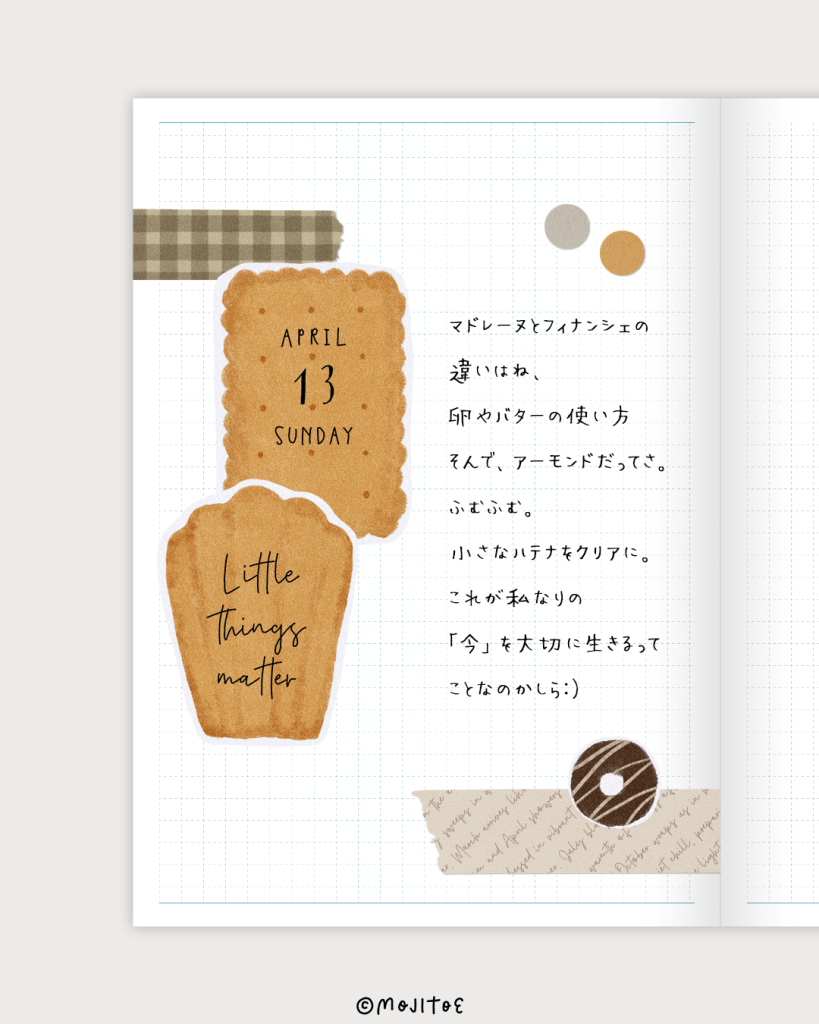 APRIL
13
SUNDAY
Little
things
matter
マドレーヌとフィナンシェの
違いはね、
卵やバターの使い方
そんで、アーモンドだってさ。
ふむふむ。
小さなハテナをクリアに。
これが私なりの
「今」を大切に生きるって
ことなのかしら:)
sweeps in
March arrives
and April showers
blessed in vibrant
July
October wraps as in
chill,
light
©MOJITOE